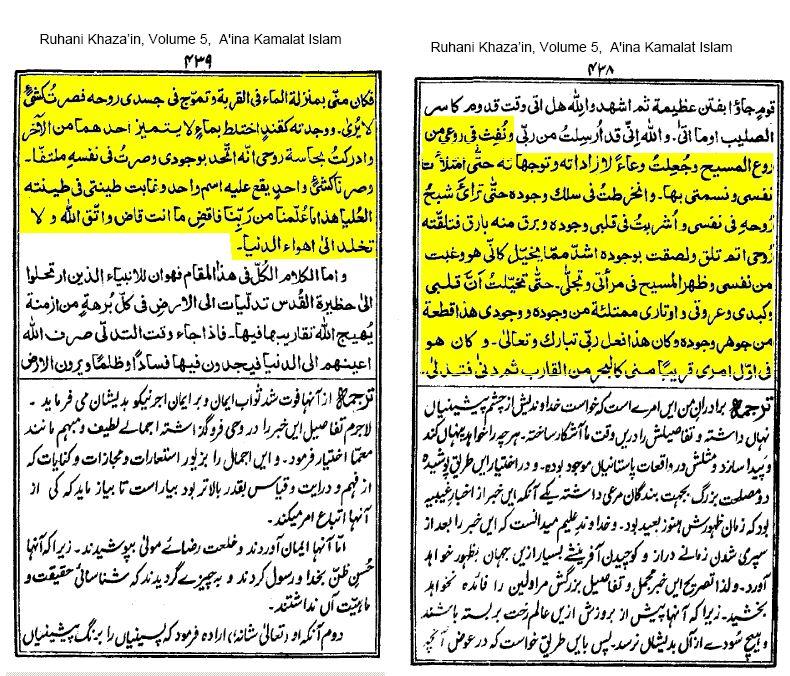 Ruhani Khaza’in, Volume 5,  A'ina Kamalat Islam
۴۳۸
قوم جاؤا بفتن عظيمة ثم اشهدوا لله هل اتى وقت قدوم كاسر
الصليب اوما اتى۔ والله انى قد اُرسلت من ربّى ونُفِث فى روعى من
روع المسيح وجُعلتُ وعاءً لاراداته وتوجهاته حتّى امتلأت
نفسى ونسمتى بها۔ وانخرطتُ فى سلك وجوده حتّى ترائ شبحُ
رُوحه فى نفسى واُشربتُ فى قلبى وجوده وبرق منه بارق فتلقّته
رُوحى اتم تلق ولصقت بوجوده اشدّ ممّا يخيّل كانّى هو وغبت
من نفسى وظهر المسيح فى مرأتى وتجلّى۔ حتّى تخيّلتُ انّ قلبى
وكبدى وعروقى واوتارى ممتلئة من وجوده ووجودى هذا قطعة
من جوهر وجوده وكان هذا فعل ربّى تبارك وتعالى۔ وكان هو
فى اوّل امرى قريبًا منى كالبحر من القارب ثم دنىٰ فتدلّىٰ۔
ترجمہ برادرانِ من ایں امرے است کہ خواست خداوندیش از چشم پیشینیاں
نہاں داشتہ و تفاصیلش را دریں وقت ما آشکار ساختہ۔ ہرچہ را خواہد پنہاں کند
و پیدا سازد و مثلش در واقعات پاستانیاں موجود بودہ۔ و در اختیار ایں طریق پوشیدہ
دو مصلحت بزرگ بجہت بندگان مرعی داشتہ یکے آنکہ ایں خبر از اخبار غیبیہ
بود کہ زمان ظہورش ہنوز بعید بود۔ و خداوند علیم میدانست کہ ایں خبر را بعد از
سپری شدن زمانے دراز و کوچیدن آفرینشے بسیار ازیں جہان بظہور خواہد
آورد۔ و لذا تصریح ایں خبر مجمل و تفاصیل بزرگش مر اولین را فائدہ نخواہد
بخشید۔ زیرا کہ آنہا پیش از بروزش ازیں عالم رخت بربستہ باشند
و ہیچ سودے ازاں بدیشاں نرسد۔ پس بایں طریق خواست کہ در عوض آنچہ
Ruhani Khaza’in, Volume 5,  A'ina Kamalat Islam
۴۳۹
فكان منّى بمنزلة الماء فى القربة وتموّج فى جسدى روحه فصرتُ كشئٍ
لا يُرىٰ۔ ووجدته كقندٍ اختلط بماءٍ لا يتميز احدهما من الآخر
وادركتُ بحاسة روحى انّه اتّحد بوجودى وصرتُ فى نفسهٖ ملتفًا۔
وصرنا كشئٍ واحدٍ يقع عليه اسم واحد وغابت طينتى فى طينته
العُليا هذا ما عُلّمنا من ربّنا فاقض ما انت قاض واتق الله ولا
تخلد الى اهواء الدنيا۔
واما الكلام الكُلّى فى هذا المقام فهو ان للانبياء الذين ارتحلوا
الىٰ حظيرة القُدس تدلّيات الى الارض فى كلّ بُرهةٍ من ازمنة
يُهيج الله تقاريب ها فيها۔ فاذا جاء وقت التدلّى صرف الله
اعينهم الى الدنيا فيجدون فيها فسادًا وظلمًا ويرون الارض
ترجمہ از آنہا فوت شد ثواب ایمان و بر ایمان اجر نیکو بدیشان می فرماید۔
لاجرم تفاصیل ایں خبر را در وحی فروگذاشتہ اجمالے لطیف و مبہم مانند
معمّا اختیار فرمود۔ و ایں اجمال را بزیور استعارات و مجازات و کنایات کہ
از فہم و درایت و قیاس بقدر بالاتر بود بیاراست تا بیازماید کہ کی از
آنہا اتباع امر میکند۔
امّا آنہا ایمان آوردند و خلعت رضائے مولیٰ بپوشیدند۔ زیرا کہ آنہا
حُسنِ ظنّ بخدا و رسول کردند و بہ چیزے گردیدند کہ شناسائی حقیقت و
ماہیّت آں نداشتند۔
دوم آنکہ او (تعالیٰ شانہٗ) ارادہ فرمود کہ پسینیاں را برنگ پیشینیاں